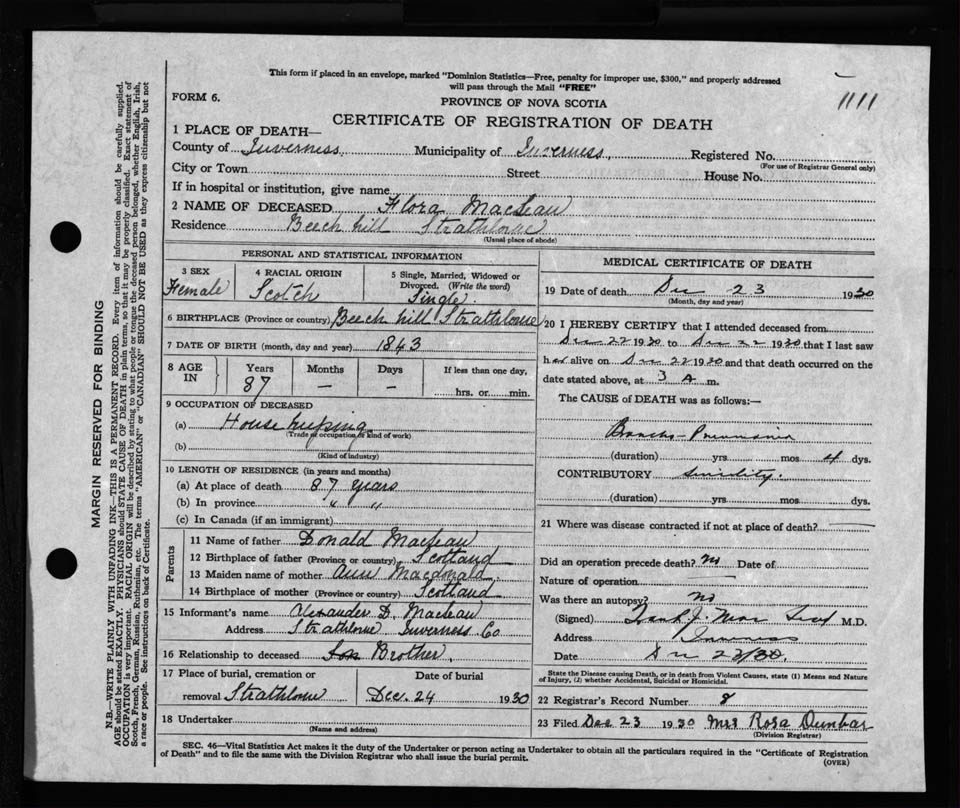 This form if placed in an envelope, marked "Dominion Statistics—Free, penalty for improper use, $300," and properly addressed
will pass through the Mail "FREE"
1111
FORM 6.
PROVINCE OF NOVA SCOTIA
CERTIFICATE OF REGISTRATION OF DEATH
1 PLACE OF DEATH—
County of Inverness, Municipality of Inverness, Registered No.
(For use of Registrar General only)
City or Town Street House No.
If in hospital or institution, give name
2 NAME OF DECEASED Flora MacLean
Residence Beech hill Strathlorne
(Usual place of abode)
PERSONAL AND STATISTICAL INFORMATION
3 SEX 4 RACIAL ORIGIN 5 Single, Married, Widowed or
Divorced. (Write the word)
Female Scotch Single.
6 BIRTHPLACE (Province or country) Beech hill Strathlorne
7 DATE OF BIRTH (month, day and year) 1843
8 AGE IN Years Months Days If less than one day,
87 — — hrs. or min.
9 OCCUPATION OF DECEASED
(a) House keeping
(Trade or occupation or kind of work)
(b)
(Kind of industry)
10 LENGTH OF RESIDENCE (in years and months)
(a) At place of death 87 years
(b) In province " "
(c) In Canada (if an immigrant)
Parents
11 Name of father Donald MacLean
12 Birthplace of father (Province or country) Scotland
13 Maiden name of mother Ann Macdonald
14 Birthplace of mother (Province or country) Scotland
15 Informant's name Alexander D. MacLean
Address Strathlorne Inverness Co
16 Relationship to deceased Son Brother,
17 Place of burial, cremation or Date of burial
removal Strathlorne Dec. 24 1930
18 Undertaker
(Name and address)
MEDICAL CERTIFICATE OF DEATH
19 Date of death Dec 23 1930
(Month, day and year)
20 I HEREBY CERTIFY that I attended deceased from
Dec 22 1930 to Dec 22 1930 that I last saw
her alive on Dec 22 1930 and that death occurred on the
date stated above, at 3 A m.
The CAUSE of DEATH was as follows:—
Broncho-Pneumonia
(duration) yrs mos 4 dys.
CONTRIBUTORY Senility.
(duration) yrs mos dys.
21 Where was disease contracted if not at place of death?
Did an operation precede death? no Date of
Nature of operation
Was there an autopsy? no
(Signed) M.D.
Address Inverness
Date Dec 23/30.
State the Disease causing Death, or in death from Violent Causes, state (1) Means and Nature
of Injury, (2) whether Accidental, Suicidal or Homicidal.
22 Registrar's Record Number 8
23 Filed Dec 23 1930 Mrs Rosa Dunbar
(Division Registrar)
SEC. 46—Vital Statistics Act makes it the duty of the Undertaker or person acting as Undertaker to obtain all the particulars required in the "Certificate of Registration
of Death" and to file the same with the Division Registrar who shall issue the burial permit.
(OVER)
MARGIN RESERVED FOR BINDING
N.B.—WRITE PLAINLY WITH UNFADING INK—THIS IS A PERMANENT RECORD. Every item of information should be carefully supplied.
AGE should be stated EXACTLY. PHYSICIANS should STATE CAUSE OF DEATH in plain terms, so that it may be properly classified. Exact statement of
OCCUPATION is very important. RACIAL ORIGIN will be described by stating to what people or tongue the deceased person belonged, whether English, Irish,
Scotch, French, German, Russian, Ruthenian, etc. The terms "AMERICAN" or "CANADIAN" SHOULD NOT BE USED as they express citizenship but not
a race or people. See instructions on back of Certificate.